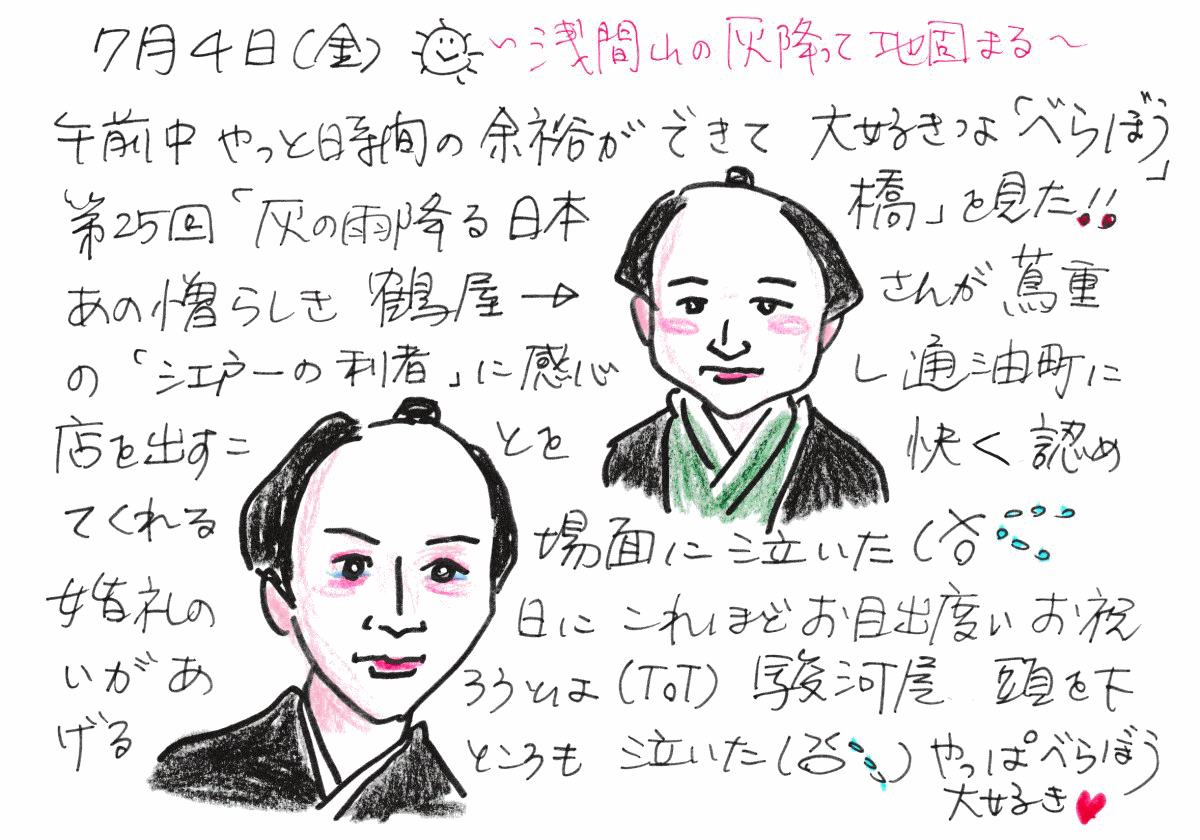 7月4日(金) ~浅間山の灰降って地固まる~
午前中やっと時間の余裕ができて 大好きな「べらぼう」
第25回「灰の雨降る日本橋」を見た!!
あの憎らしき 鶴屋→さんが蔦重
の「江戸一の利者」に感心し通油町に
店を出すことを快く認め
てくれる場面に泣いた(
婚礼の日に これほどお目出度いお祝
いがあろうとは(ToT) 駿河屋 頭を下
げるところも 泣いた( ) やっぱべらぼう
大好き♥